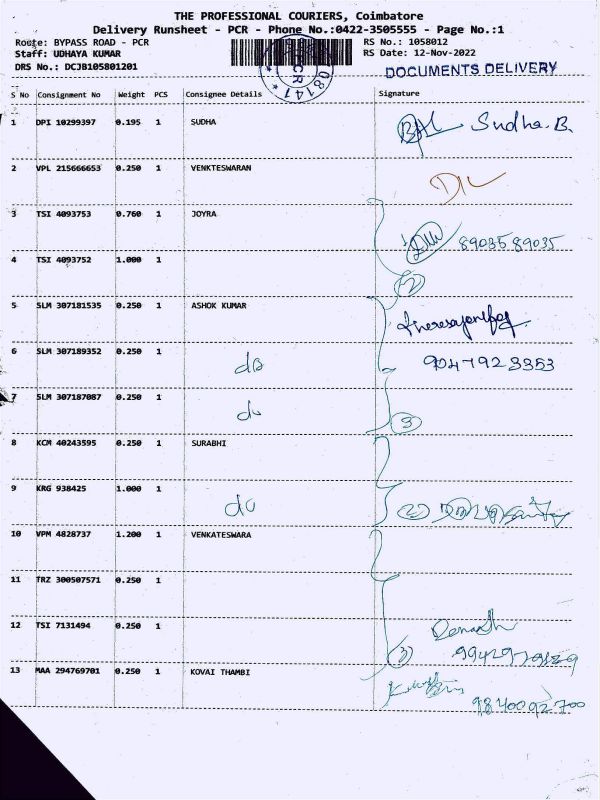 THE PROFESSIONAL COURIERS, Coimbatore
Delivery Runsheet - PCR - Phone No.:0422-3505555 - Page No.:1
Route: BYPASS ROAD - PCR
Staff: UDHAYA KUMAR
DRS No.: DCJB105801201
RS No.: 1058012
RS Date: 12-Nov-2022
PCR
08141
DOCUMENTS DELIVERY
S No Consignment No Weight PCS Consignee Details Signature
1 DPI 10299397 0.195 1 SUDHA Sudha.B.
2 VPL 215666653 0.250 1 VENKTESWARAN
3 TSI 4093753 0.760 1 JOYRA 8903589035
4 TSI 4093752 1.000 1 2
5 SLM 307181535 0.250 1 ASHOK KUMAR
6 SLM 307189352 0.250 1 do 9047923353
7 SLM 307187087 0.250 1 do 3
8 KCM 40243595 0.250 1 SURABHI
9 KRG 938425 1.000 1 do 2
10 VPM 4828737 1.200 1 VENKATESWARA
11 TRZ 300507571 0.250 1
12 TSI 7131494 0.250 1 3
13 MAA 294769701 0.250 1 KOVAI THAMBI
9840092700